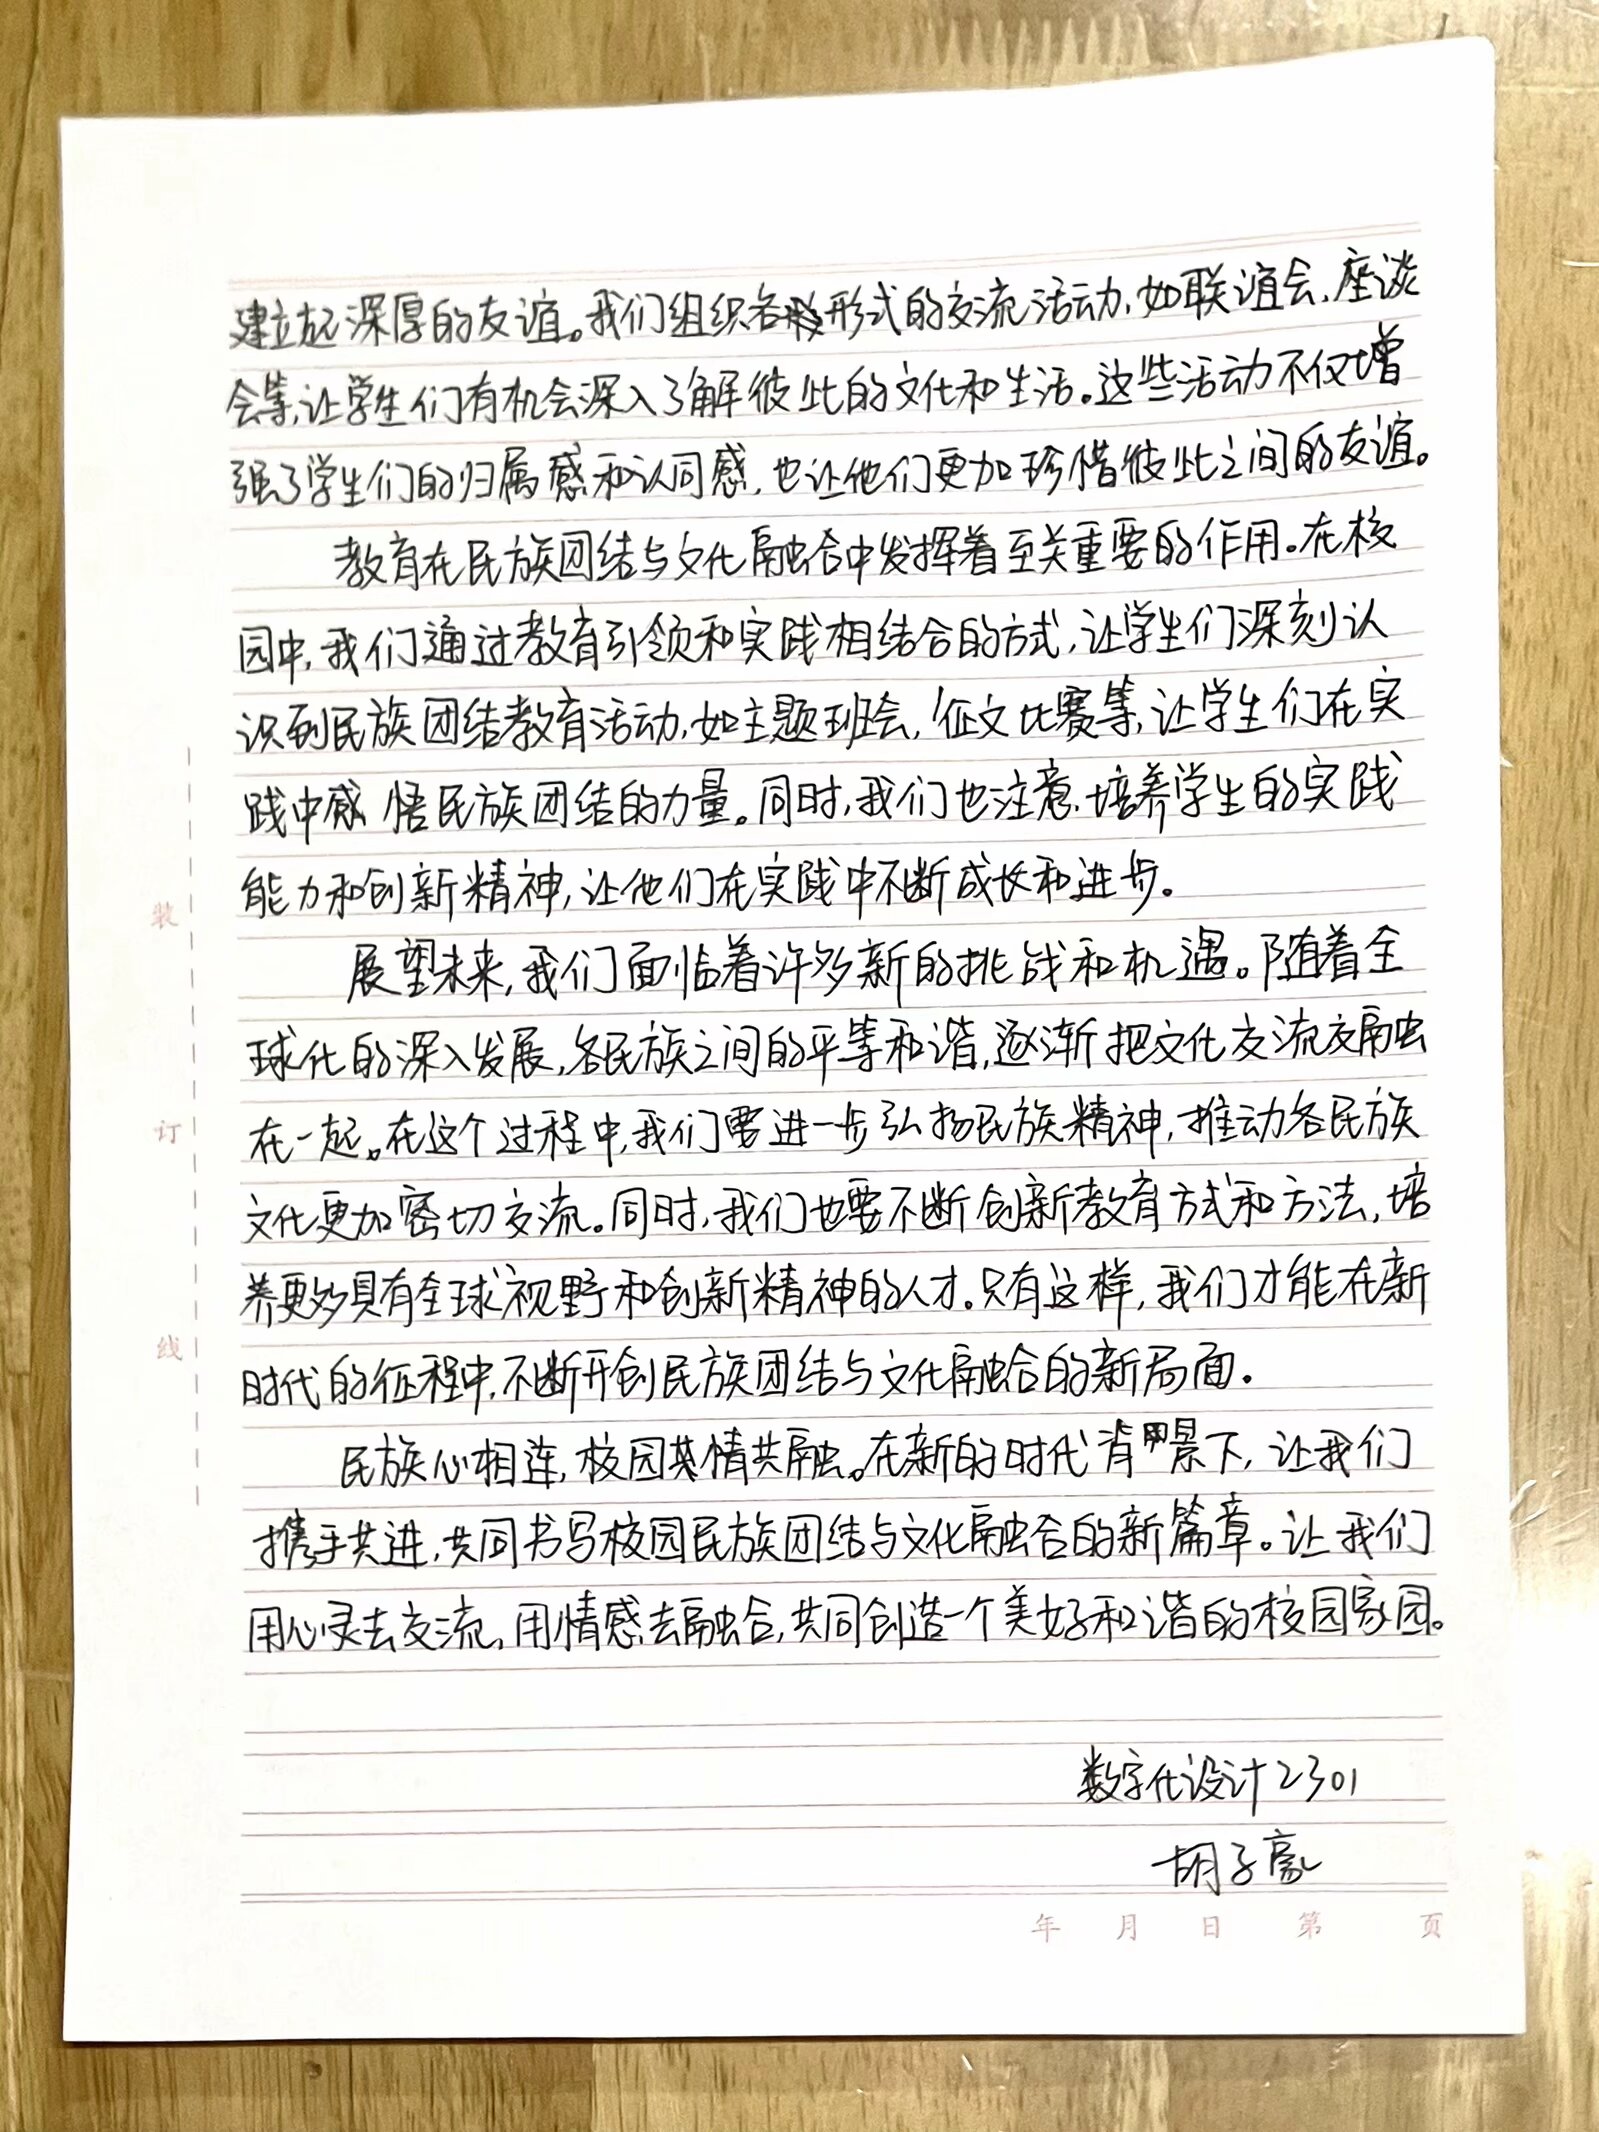 建立起深厚的友谊。我们组织各种形式的交流活动，如联谊会、座谈
会等，让学生们有机会深入了解彼此的文化和生活。这些活动不仅增
强了学生们的归属感和认同感，也让他们更加珍惜彼此之间的友谊。
教育在民族团结与文化融合中发挥着至关重要的作用。在校
园中，我们通过教育引领和实践相结合的方式，让学生们深刻认
识到民族团结教育活动，如主题班会，征文比赛等，让学生们在实
践中感悟民族团结的力量。同时，我们也注意培养学生的实践
能力和创新精神，让他们在实践中不断成长和进步。
展望未来，我们面临着许多新的挑战和机遇。随着全
球化的深入发展，各民族之间的平等和谐，逐渐把文化交流交融
在一起。在这个过程中，我们要进一步弘扬民族精神，推动各民族
文化更加密切交流。同时，我们也要不断创新教育方式和方法，培
养更多具有全球视野和创新精神的人才。只有这样，我们才能在新
时代的征程中，不断开创民族团结与文化融合的新局面。
民族心相连，校园情共融。在新的时代背景下，让我们
携手共进，共同书写校园民族团结与文化融合的新篇章。让我们
用心灵去交流，用情感去融合，共同创造一个美好和谐的校园家园。
数字化设计2301
胡子豪
装
订
线
年 月 日 第 页